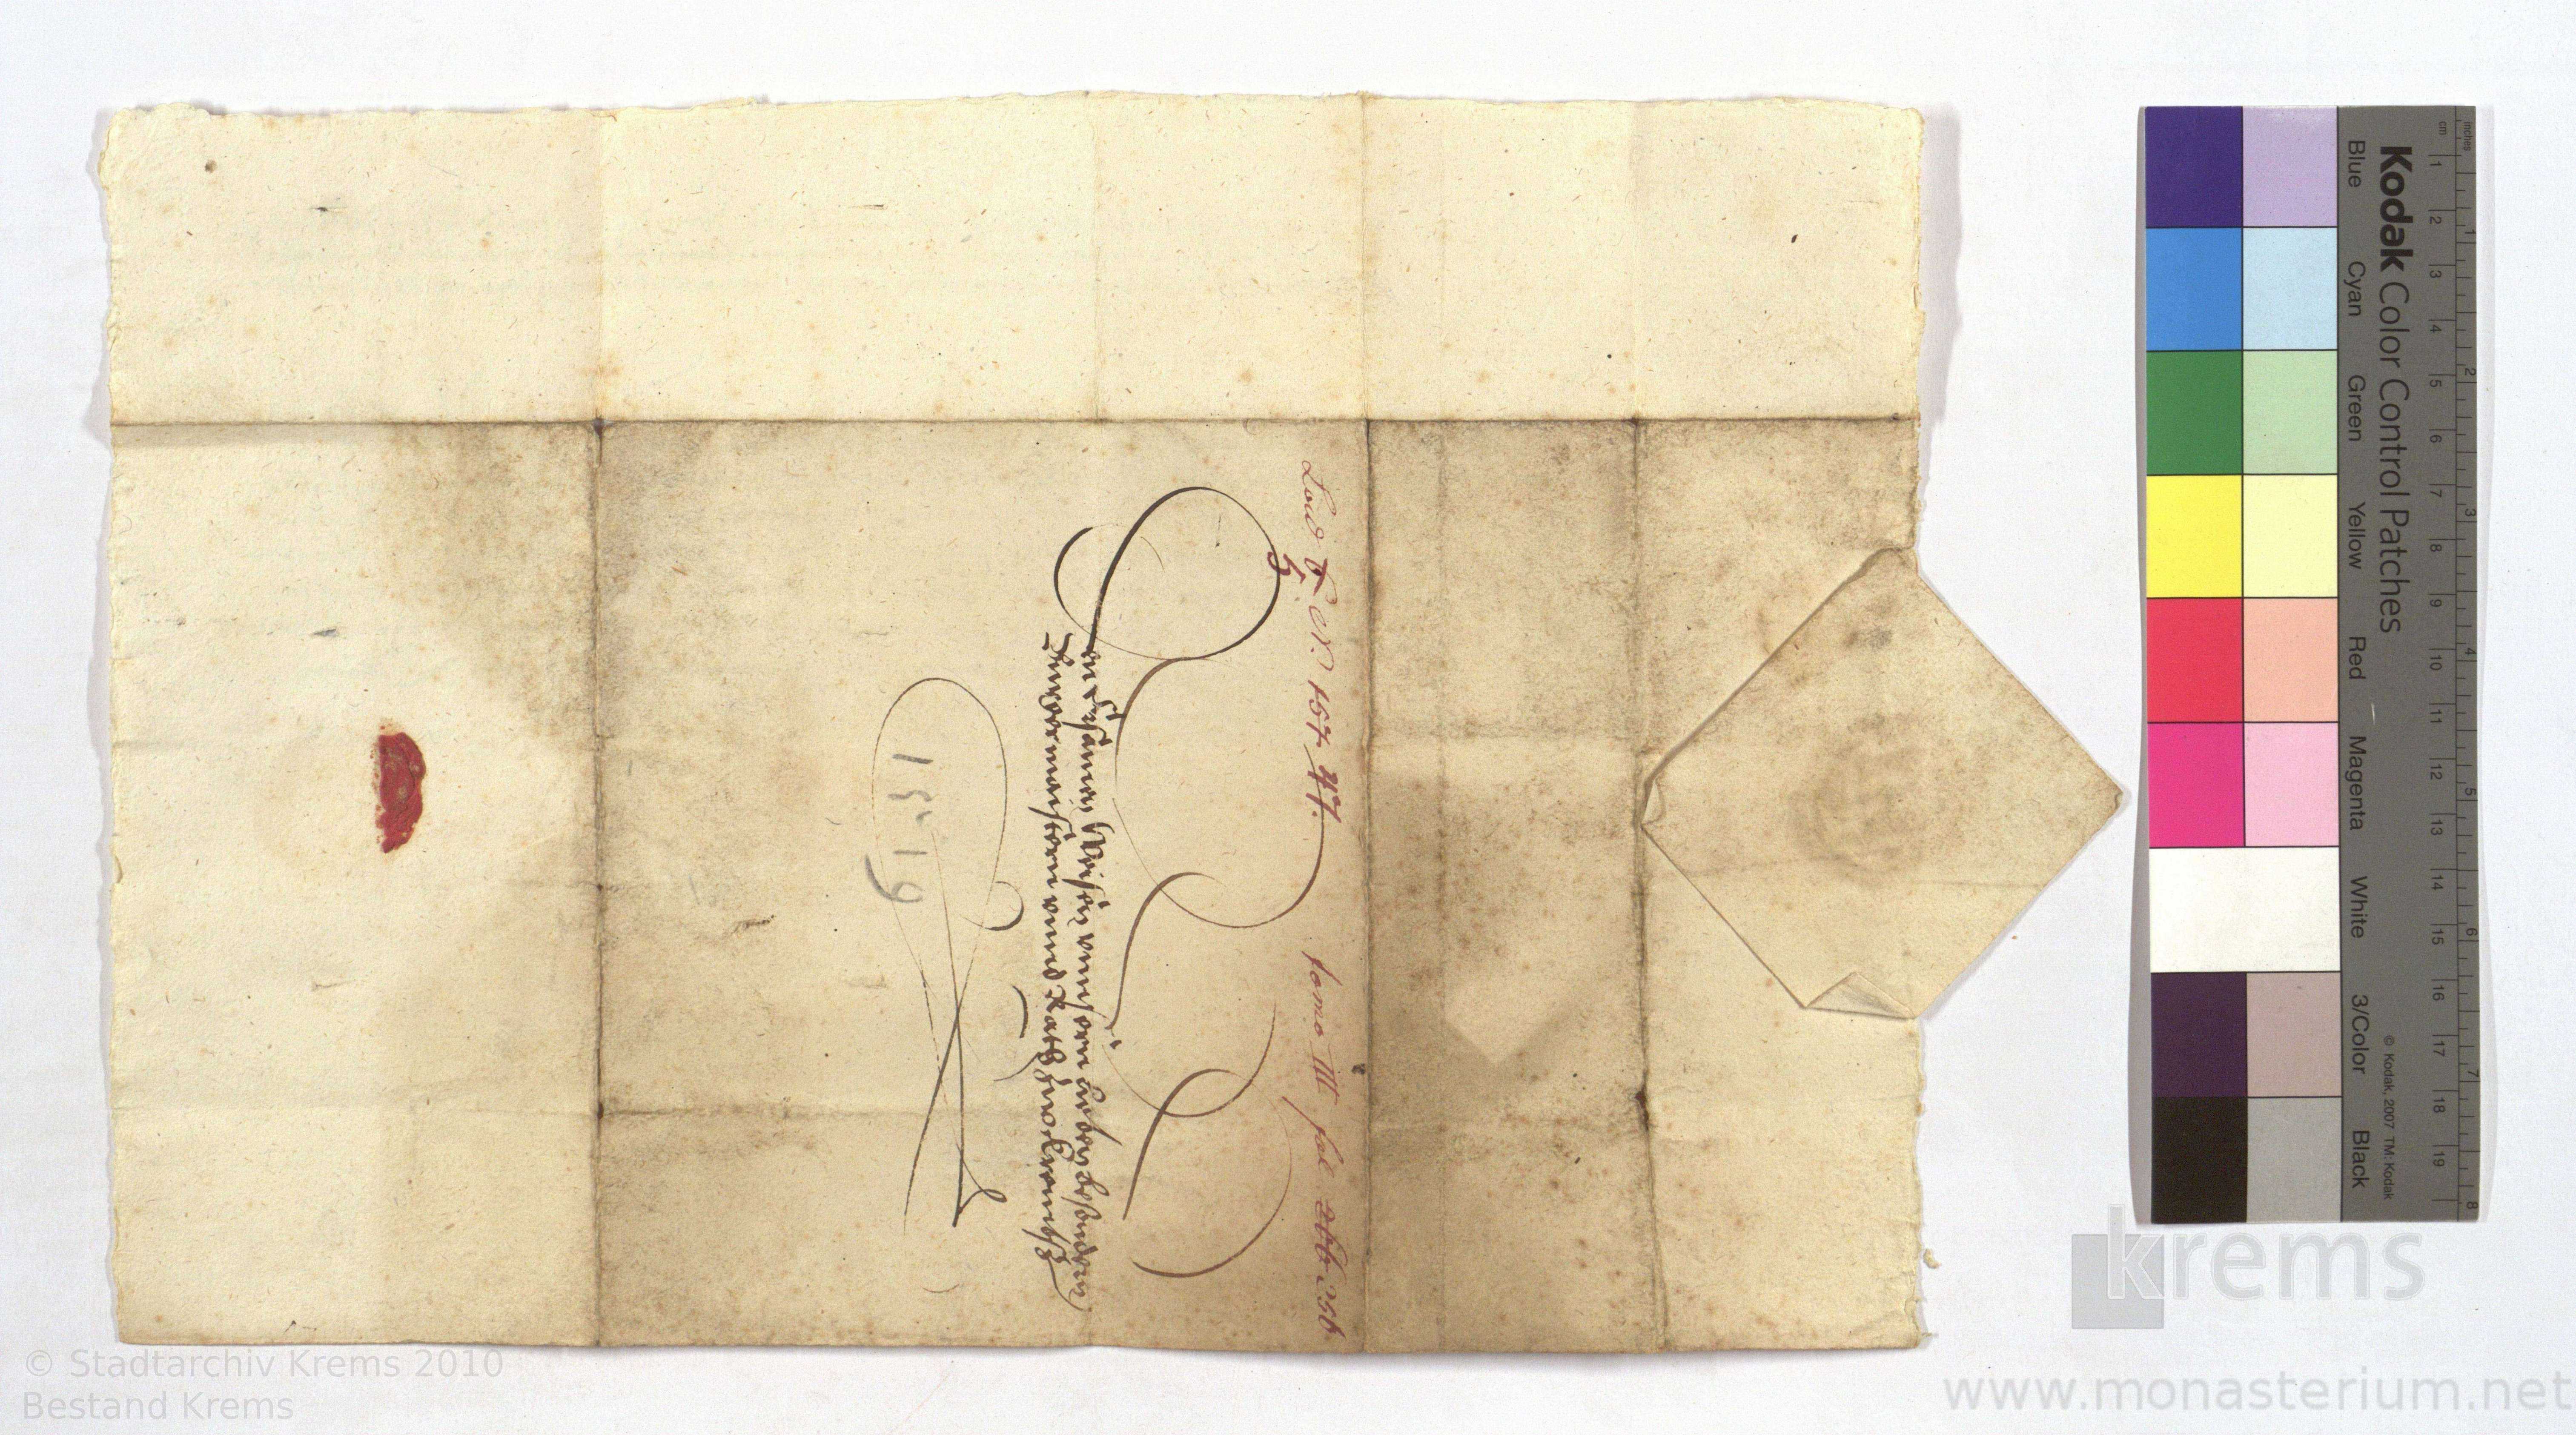 Lad 6 N.° 157 47.
5
tomo III fol 266 256
Den Ersamen Weisen unnsern lieben besondern
Burgermaister unnd Rath zu Krembs
1519
© Stadtarchiv Krems 2010
Bestand Krems
krems
www.monasterium.net
Kodak Color Control Patches
Blue Cyan Green Yellow Red Magenta White 3/Color Black
© Kodak, 2007 TM: Kodak
cm 1 2 3 4 5 6 7 8 9 10 11 12 13 14 15 16 17 18 19
inches 1 2 3 4 5 6 7 8